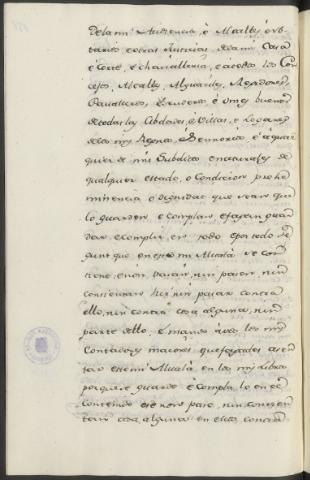 de la mi Audiencia, è Alcalds, è No-
tarios è otras Justicias de la mi Casa
è Corte, è chancilleria, è à todos los Con
cejos, Alcalds, Alguaciles, Regidores,
Cavalleros, Escuderos è omes buenos
de todas las Cibdades, è Villas, è Logares
de los mis Regnos, è Sennorios, è à qual
quier de mis Subditos e naturales de
qualquier estado, o Condicion prehe
minencia è dignidat que sean que
lo guarden, è complan, è fagan guar
dar è complir en todo è por todo se
gunt que en este mi Alvala se con
tiene, è non vayan, nin pasen nin
consientan ir nin pasar contra
ello, nin contra cosa alguna, nin
parte dello, è mando à los mis
Contadores maiores que fagades asen
tar este mi Alvala en los mis Libros
porque se guarde è compla lo en el
contenido è se non pase, nin consien
tan cosa alguna en ello contra